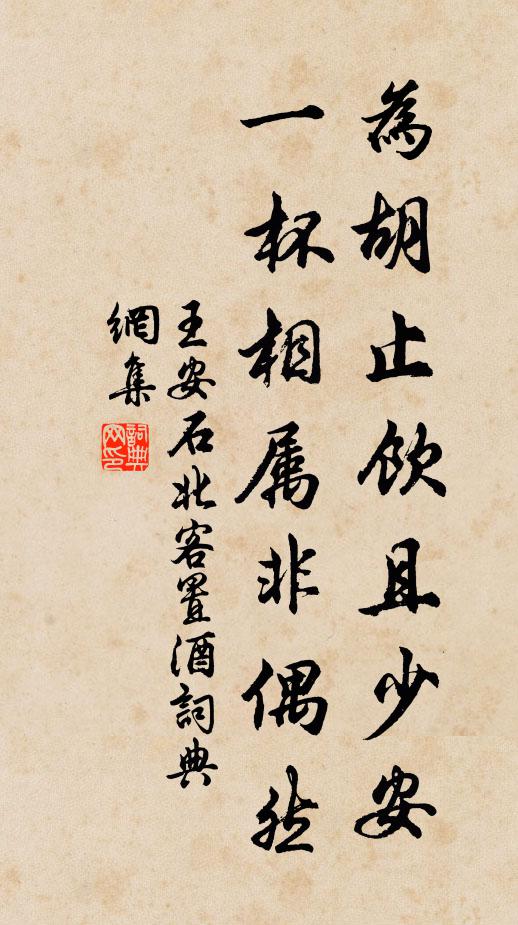 為胡止飲且少安
一杯相属非偶然
王安石北客置酒詞典
網集
詞典網印